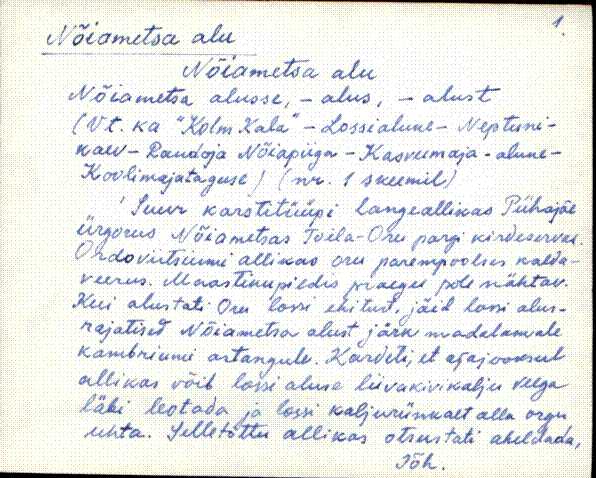 1.
Nõiametsa alu
Nõiametsa alu
Nõiametsa alusse, - alus, - alust
(Vt. ka "Kolm Kala" - Lossialune - Neptuni-
kaev - Raudoja Nõiapiiga - Kasvumaja - alune -
Koolimajataguse) (nr. 1 skeemil)
Suur karstitüüpi langeallikas Pühajõe
ürgorus Nõiametsas Toila-Oru pargi kirdeservas.
Ordoviitsiumi allikas oru parempoolses kalda-
veerus. Maastikupildis praegu pole nähtav.
Kui alustati Oru lossi ehitust, jäid lossi alus-
rajatised Nõiametsa alust järk madalamale
kambriumi astangule. Kardeti, et ajajooksul
allikas võib lossi aluse liivakivikalju veega
läbi leotada ja lossi kaljurünkalt alla orgu
uhta. Selletõttu allikas otsustati aheldada,
Tõh.